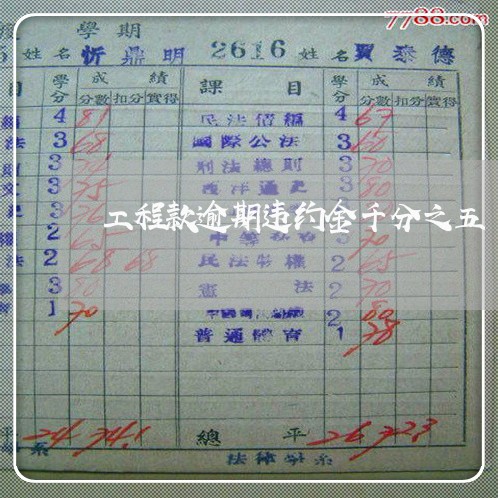 7788.com
學期
姓名 忻鼎明 2616 姓名 賈泰德
目 學分 成績 課目 學分 成績
分數 扣分 實得 分數 扣分 實得
4 81 民法債編 4 67
法 3 68 國際公法 3 60
3 刑法總則 3 70
3 75 西洋通史 3 80
3 76
工程款逾期违约金千分之五
2 65 70
法 2 68 68 民法物權 2 65
3 80 憲法 2 70
1 70 2 80
普通體育 1 78
平 24 74.1 總平 26 72.3
系 法律學系